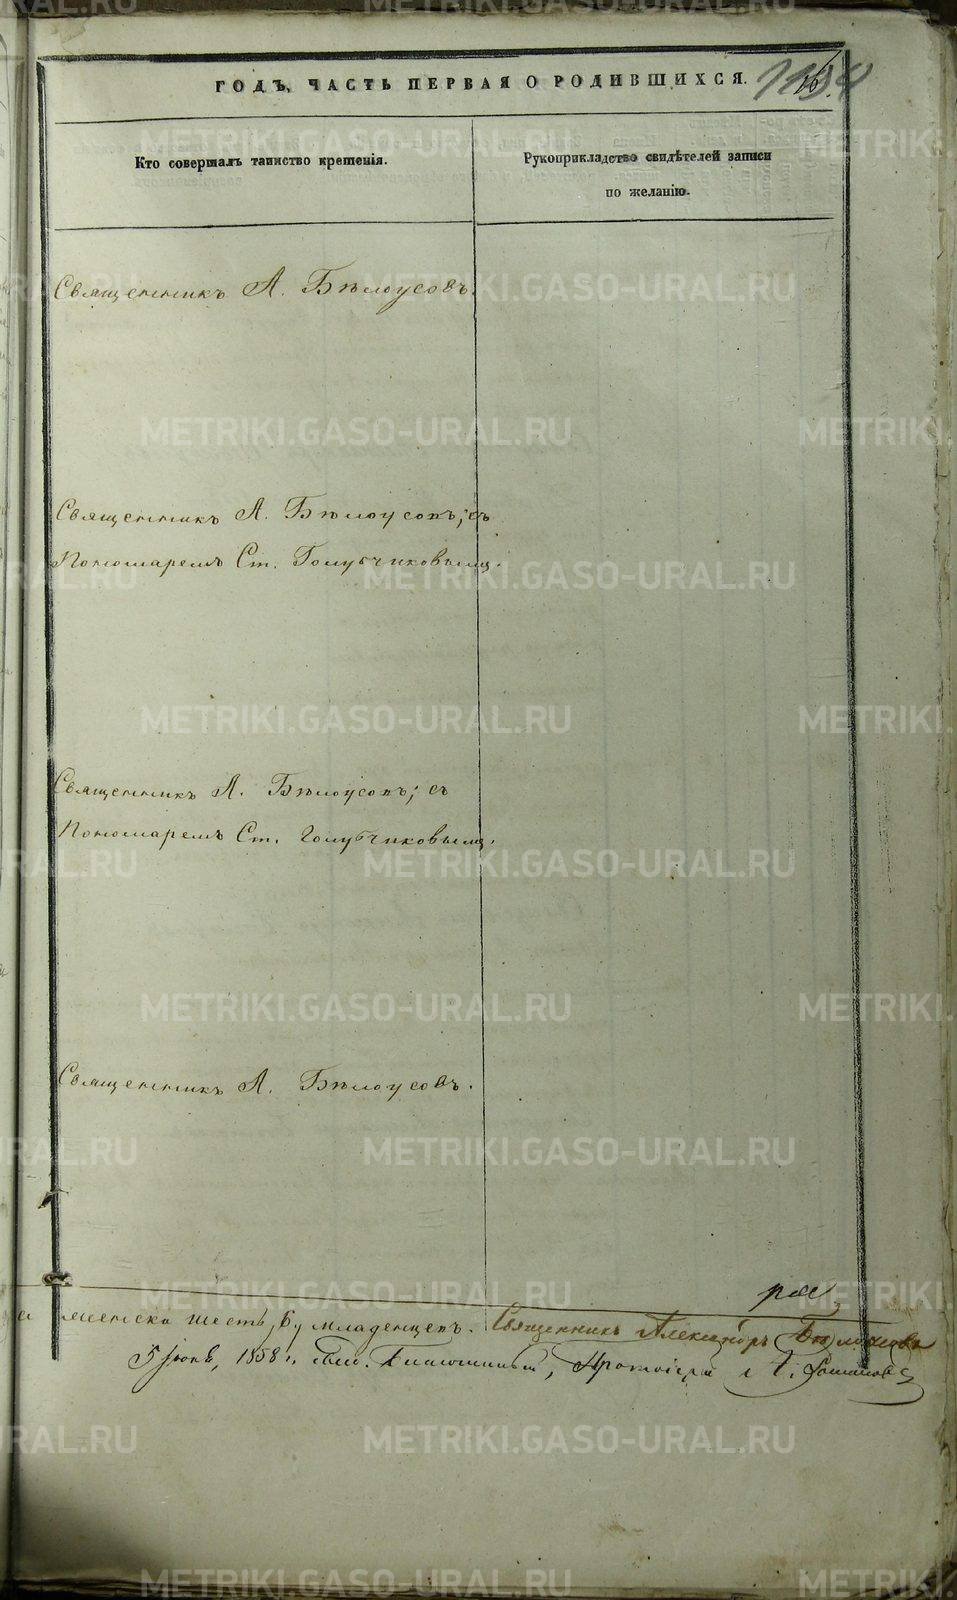 ГОДЪ, ЧАСТЬ ПЕРВАЯ О РОДИВШИХСЯ.
Кто совершалъ таинство крещенія.
Рукоприкладство свидѣтелей записи
по желанію.
Священникъ А. Бѣлоусовъ.
Священникъ А. Бѣлоусовъ; съ
Пономаремъ Ст. Голубчиковымъ.
Священникъ А. Бѣлоусовъ; съ
Пономаремъ Ст. Голубчиковымъ.
Священникъ А. Бѣлоусовъ.
женска шесть, 6, младенцевъ. Священникъ Александръ Бѣлоусовъ
5 1858 Протоіерей
METRIKI.GASO-URAL.RU